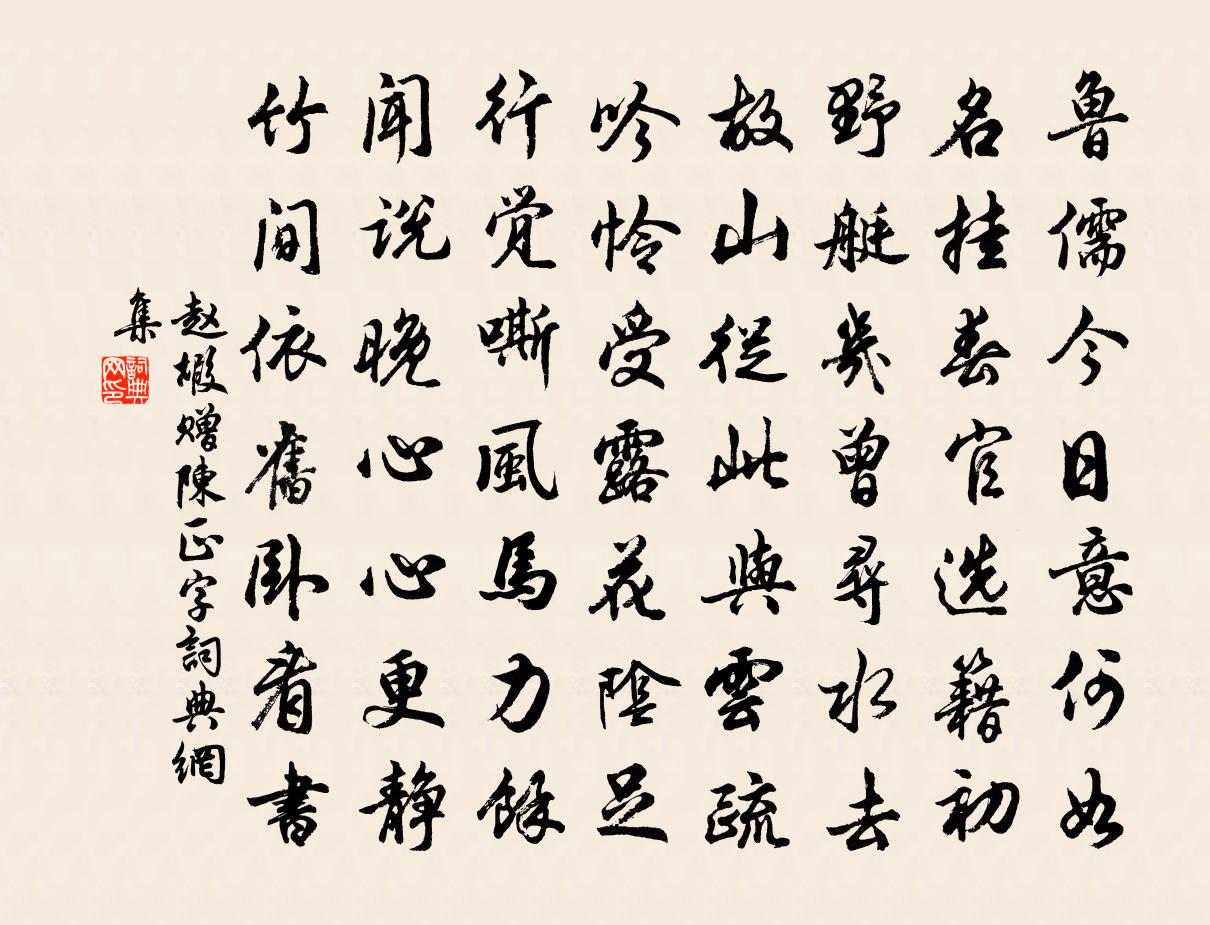 魯儒今日意何如
名挂春官选籍初
野艇幾曾尋水去
故山從此與雲疏
吟怜受露花陰足
行觉嘶風馬力餘
闻说晚心心更静
竹间依舊卧看書
赵嘏赠陳正字詞典網
集
詞典网印